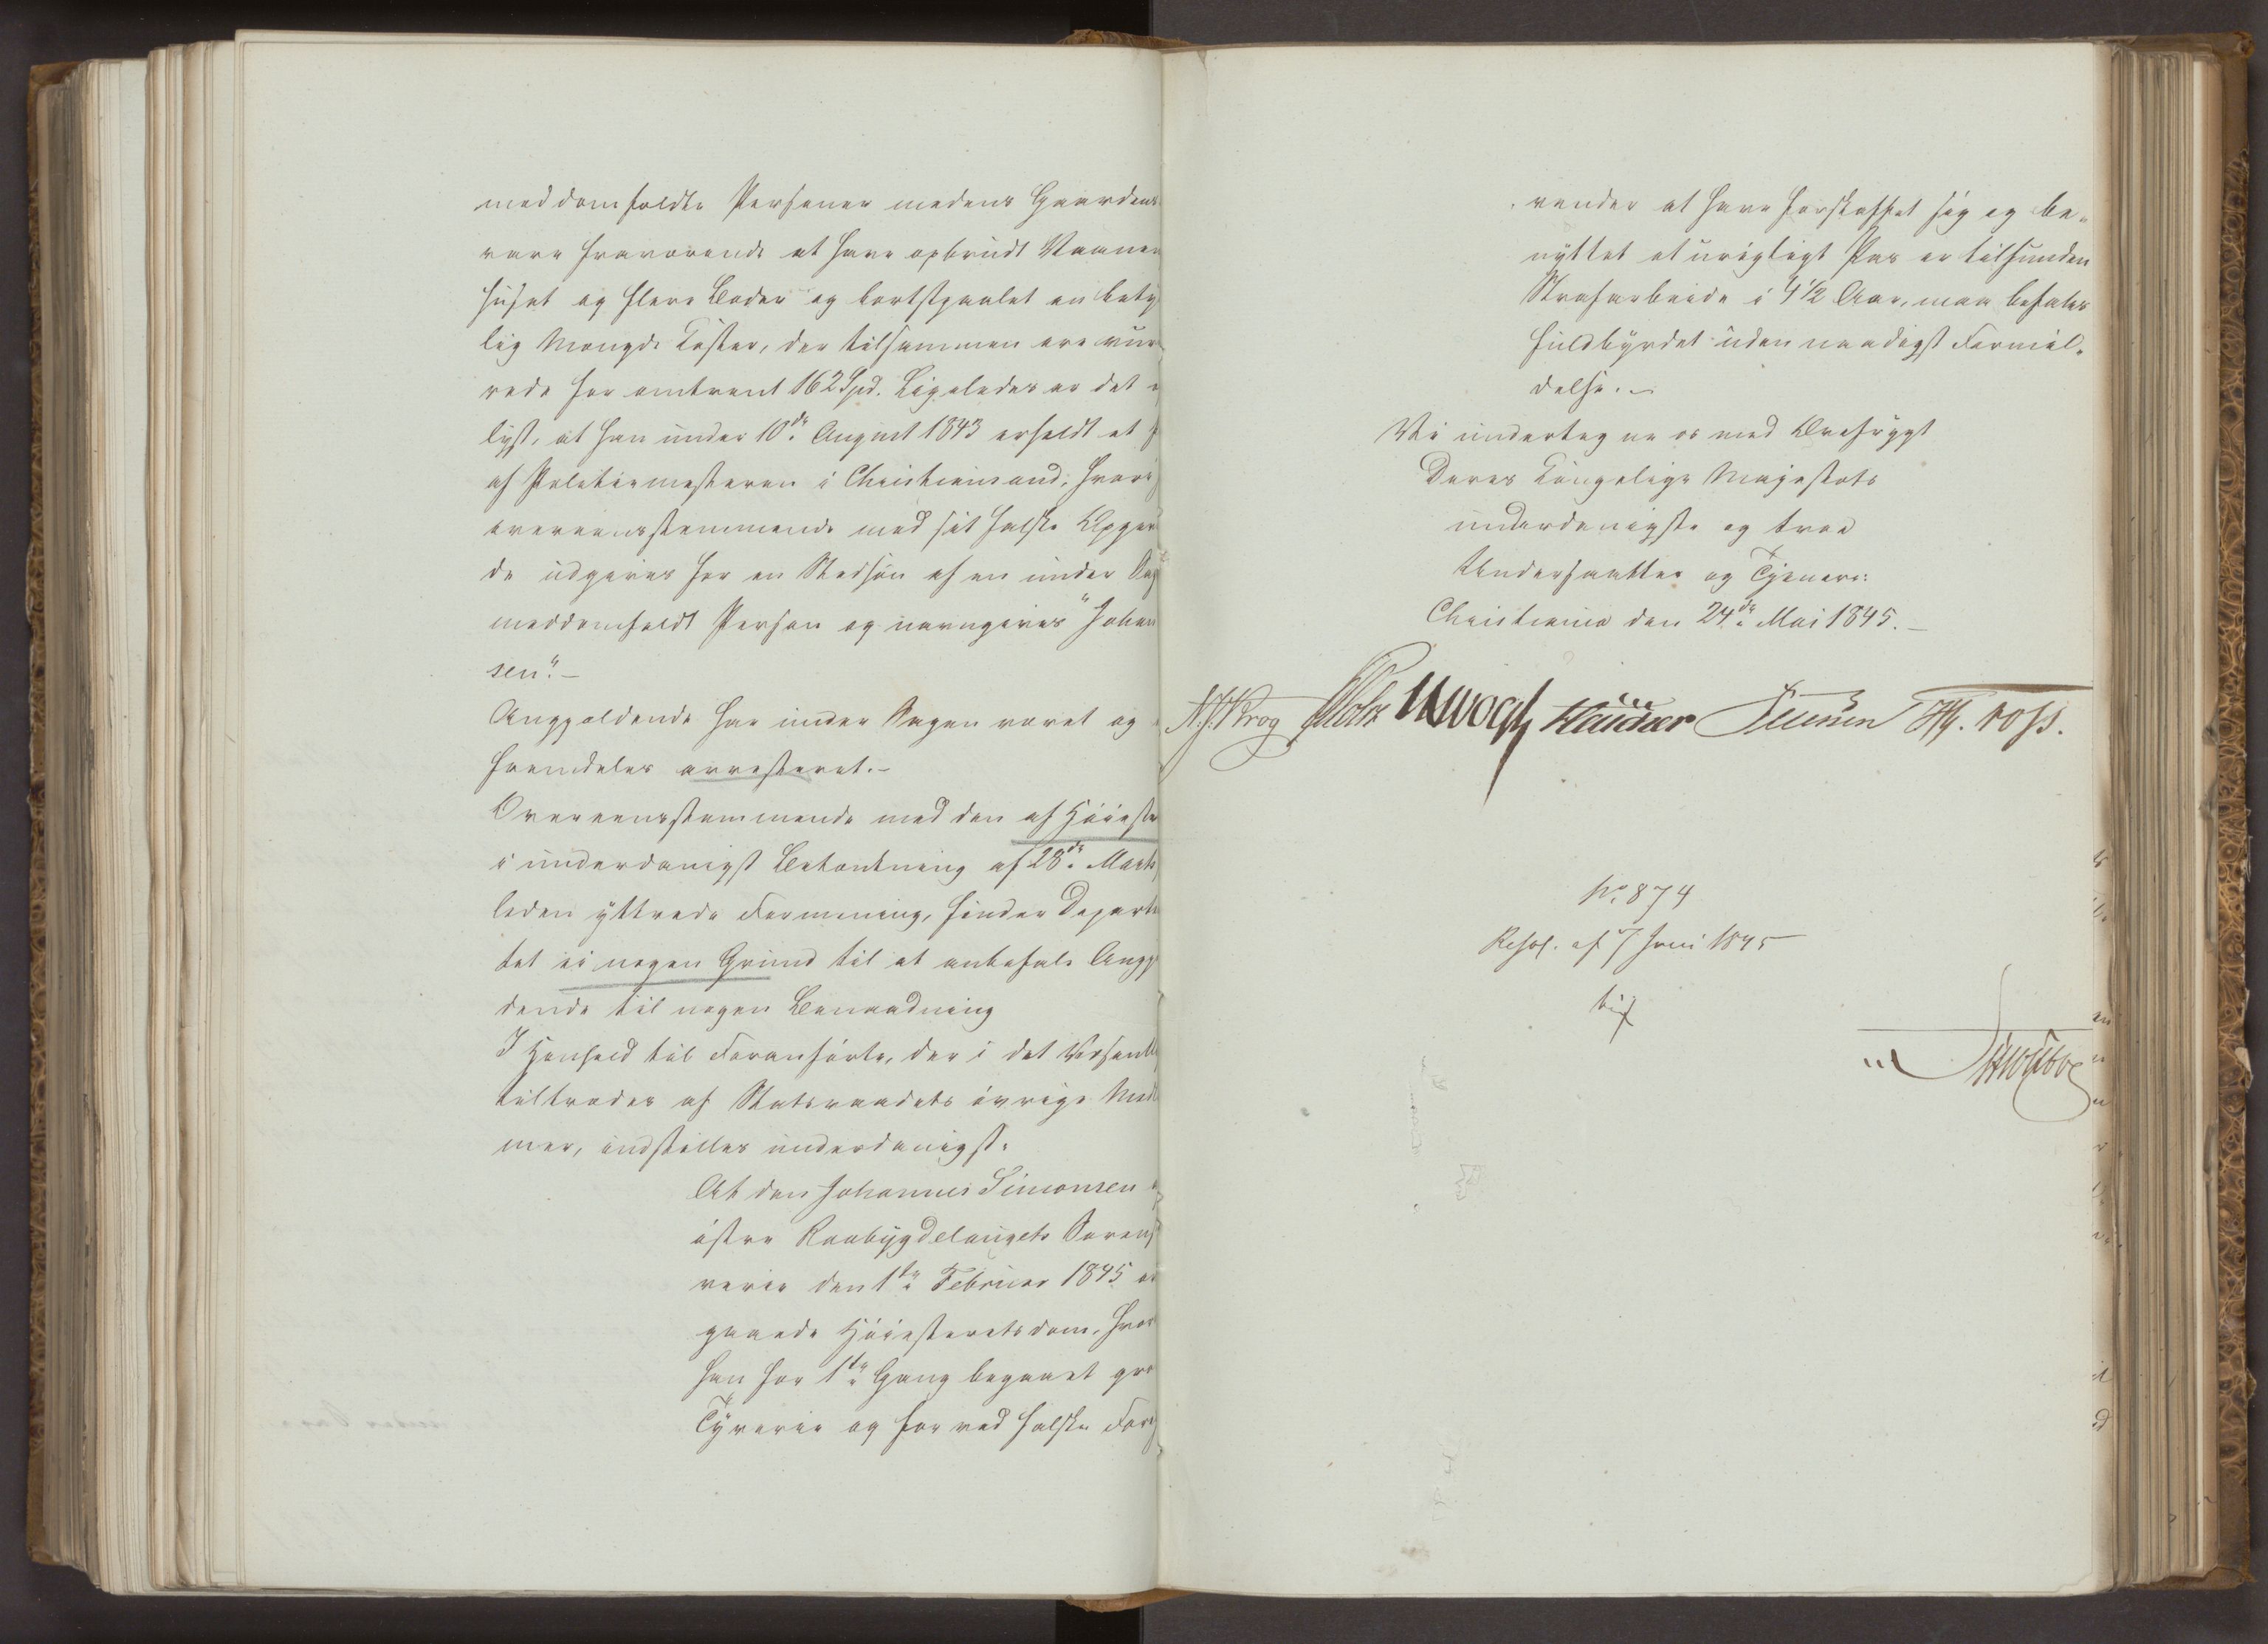 meddomfældte Personer medens Gaardens
vare fraværende at have opbrudt Vaanen
huset og flere Boder og bortstjaalet en bety
lig Mængde Koster, der tilsammen ere vur
rede for omtrent 162 Spd. Ligeledes er det
lyst, at han under 10de August 1843 erholdt et
af Politiemesteren i Christiansand, hvori
overeensstemmende med sit falske Opgiven
de udgives for en Stedsøn af en under Sag
meddomfældt Person og navngives "Johan
sen".-
Anggjældende har under Sagen været og
fremdeles arresteret.-
Overeensstemmende med den af Høieste
i underdanigst Betænkning af 28de Marts
leden yttrede Formening, finder Departe
tet ei nogen Grund til at anbefale Angj
dende til nogen Benaadning
I Henhold til Foranførte, der i det Væsentl
tiltrædes af Statsraadets øvrige Med
mer, indstilles underdanigst:
At den Johannes Simonsen
østre Raabygdelaugets Sorens
verie den 1ste Februar 1845
gaaede Høiesteretsdom, hvor
han for 1ste Gang begaaet gro
Tyverie og for ved falske Fore
vender at have forskaffet sig og be-
nyttet et urigtigt Pas er tilfunden
Strafarbeide i 4 1/2 Aar, maa befales
fuldbyrdet uden naadigst Formil-
delse.-
Vi undertegne os med Ærefrygt
Deres Kongelige Majestæts
underdanigste og troe
Undersaatter og Tjenere:
Christiania den 24de Mai 1845.-
N. J. Krog Vogt
No 874
Resol. af 7 Juni 1845